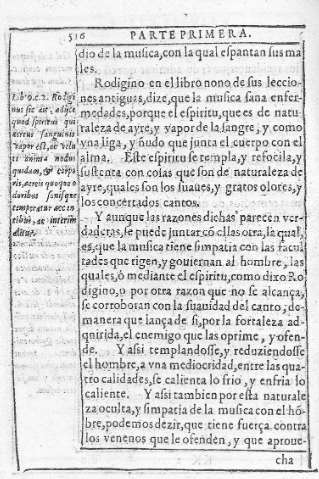 516 PARTE PRIMERA.
dio de la musica, con la qual espantan sus ma
les.
Rodigino en el libro nono de sus leccio-
nes antiguas, dize, que la musica sana enfer-
medades, porque el espiritu, que es de natu
raleza de ayre, y vapor de la sangre, y como
vna liga, y ñudo que junta el cuerpo con el
alma. Este espiritu se templa, y refocila, y
sustenta con cosas que son de naturaleza de
ayre, quales son los suaues, y gratos olores, y
los concertados cantos.
Y aunque las razones dichas parecen ver-
daderas, se puede juntar cõ ellas otra, la qual,
es, que la musica tiene simpatia con las facul
tades que rigen, y gouiernan al hombre, las
quales, ó mediante el espiritu, como dixo Ro
digino, o por otra razon que no se alcança,
se corroboran con la suauidad del canto, de
manera que lança de si, por la fortaleza ad-
quirida, el enemigo que las oprime, y ofen-
de. Y assi templandosse, y reduziendosse
el hombre, a vna mediocridad, entre las qua
tro calidades, se calienta lo frio, y enfria lo
caliente. Y assi tambien por esta naturale
za oculta, y simpatia de la musica con el hõ-
bre, podemos dezir, que tiene fuerça contra
los venenos que le ofenden, y que aproue-
cha
Lib. 9. c. 2. Rodigi
nus sic ait, adijce
quod spiritus qui
aereus sanguinis
vapor est, ac velu
ti animæ nodus
quidam, & corpo
ris, aereis quoque o
doribus sonisque
temperatur accen
tibus, ac interim
alitur.